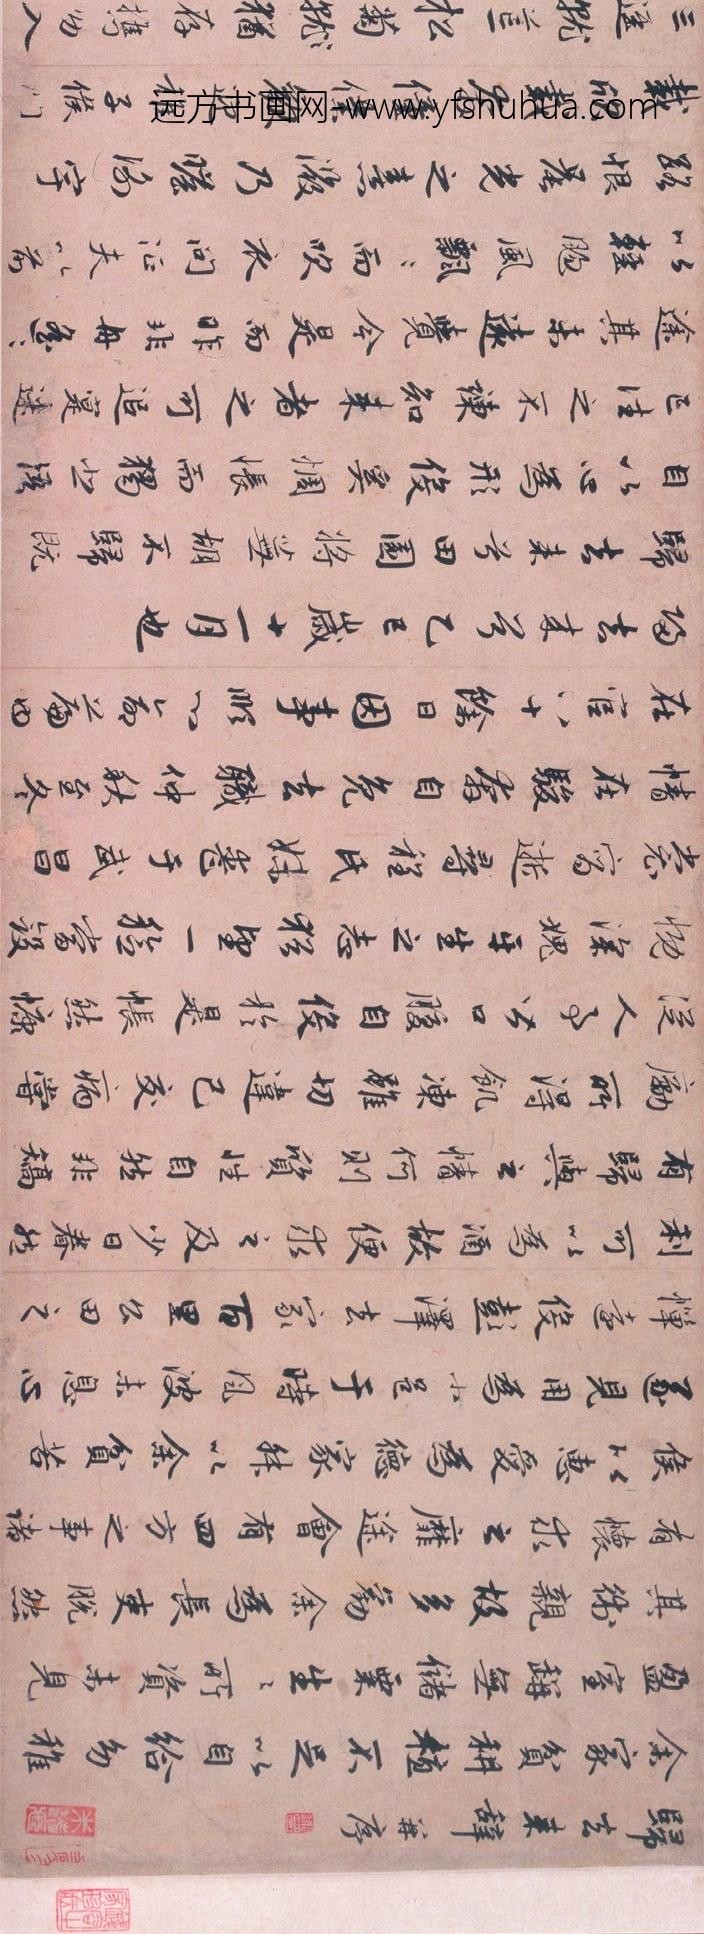 歸去來辭并序
余家貧耕植不足以自給幼稚
盈室缾無儲粟生々所資未見
其術親故多勸余為長吏脫然
有懷求之靡途會有四方之事諸
侯以惠愛為德家叔以余貧苦
遂見用為小邑于時風波未息心
憚遠役彭澤去家百里公田之
利可以為酒故便求之及少日眷然
有歸歟之情何則質性自然非矯
勵所得飢凍雖切違己交病嘗
從人事皆口腹自役於是悵然慷
慨深愧平生之志猶望一稔當斂
裳宵逝尋程氏妹喪于武昌
情在駿奔自免去職仲秋至冬
在官八十餘日因事順心命篇曰
歸去來兮乙巳歲十一月也
歸去來兮田園將蕪胡不歸既
自以心為形役奚惆悵而獨悲悟
已往之不諫知來者之可追寔迷
途其未遠覺今是而昨非舟遙々
以輕颺風飄々而吹衣問征夫以前
路恨晨光之熹微乃瞻衡宇
載欣載奔僮僕歡迎稚子候門
三逕就荒松菊猶存攜幼入
远方书画网-www.yfshuhua.com